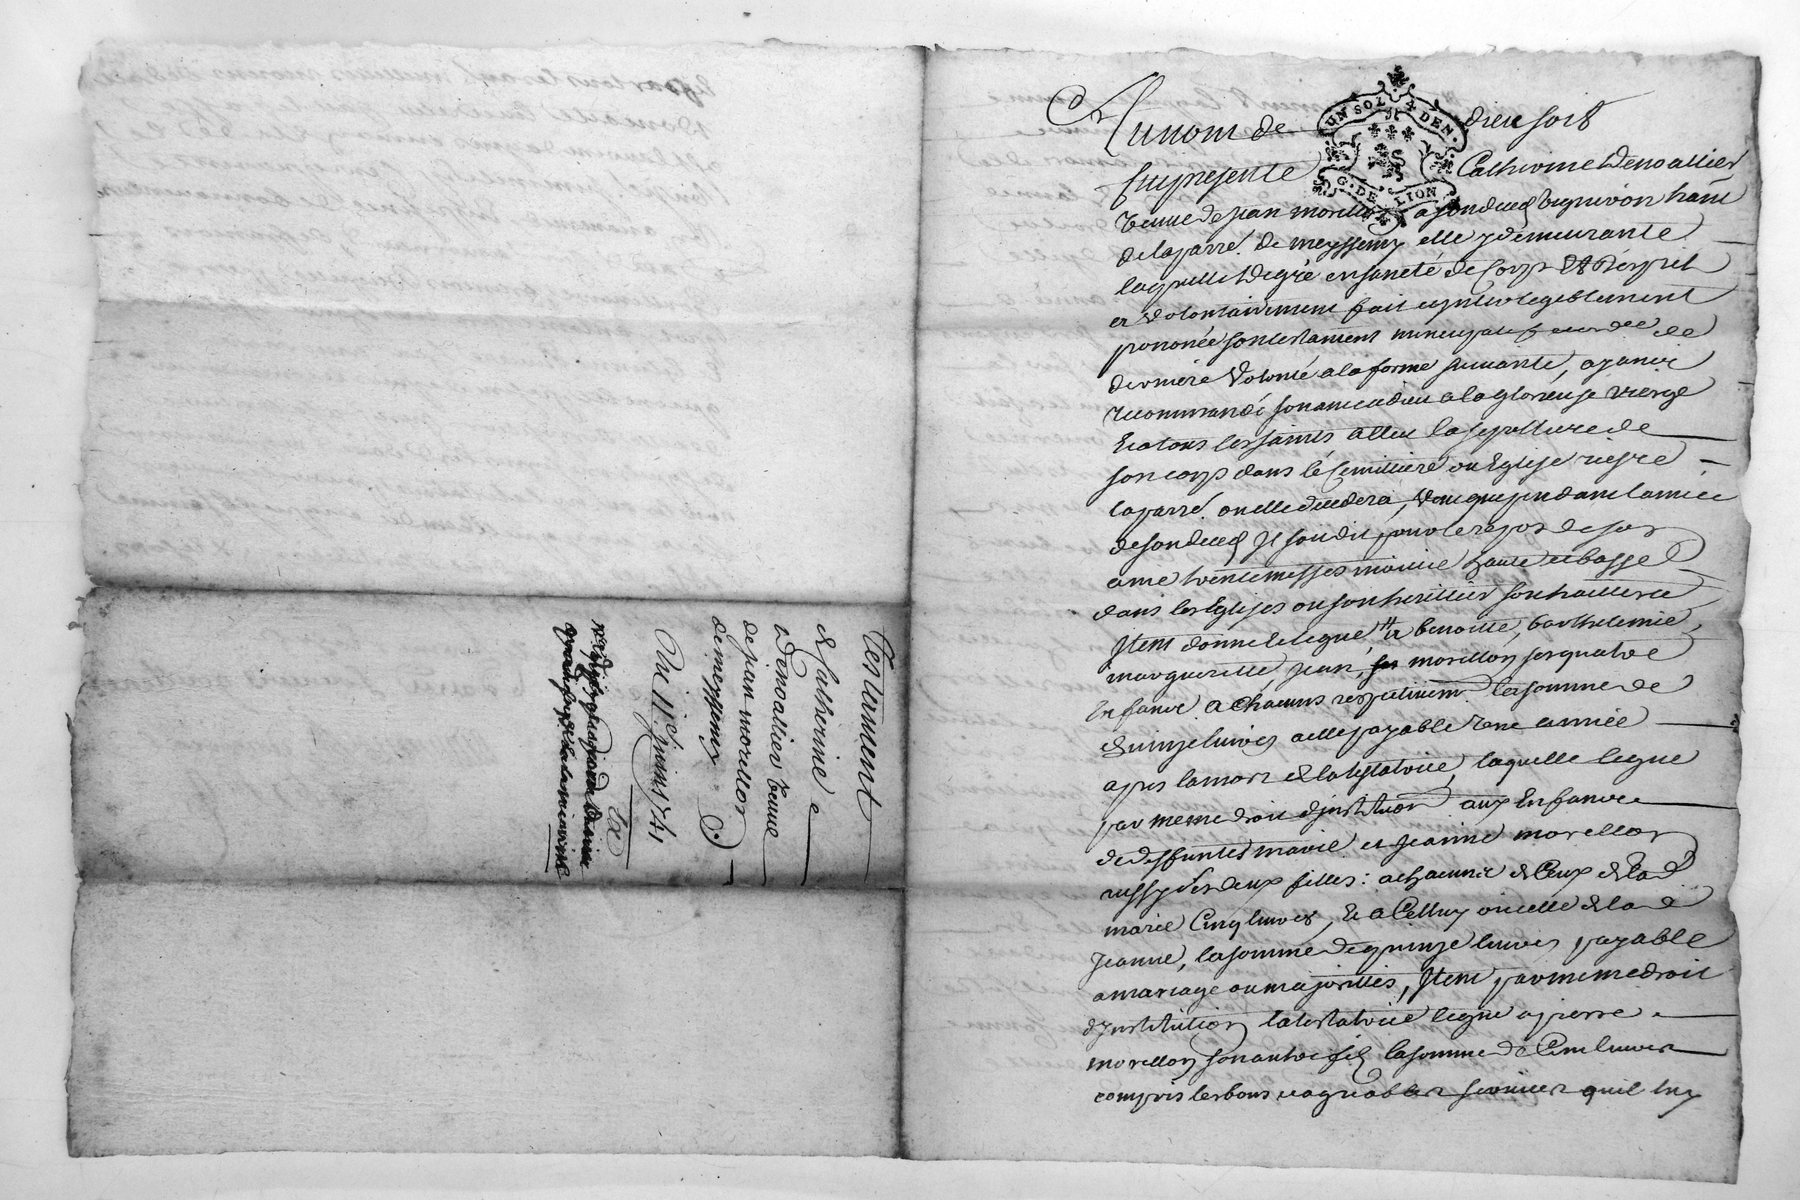 Testament
de Catherine
Denoallier veuve
de jean morillon
de meyssemy
Du 11e juin 1741
Ex
UN SOL 4 DEN
G. DE LION
Au nom de dieu soit
fut presente Catherine Denoallier
veuve de jean morillon a son deces vigniron hant
de la parre. de meyssemy elle y demeurante
laquelle de gré en santé de Corps Et D'esprit
et volontairement fait
prononcé son testament nuncupatif et ordce de
derniere volonté a la forme suivante, ayant
recommandé son ame a dieu a la glorieuse vierge
Et a tous les saints Alleu la sepulture de
son corps dans le Cemittiere ou Eglise
la parré. ou elle decedera, veut que pendant l'année
de son deces Il soit dit pour le repos de son
ame trente messes moitié haute et basse
dans les Eglises ou son heritier souhaittera
Item donne et legue à benoitte, barthelemie,
margueritte jean, morillon ses quatre
Enfants a chacuns respectivemt la somme de
quinze livres a elle payable une année
apres la mort de la testatrice, laquelle legue
par meme droit d'institution aux Enfants
de deffuntes marie et jeanne morillon
aussy ses deux filles: a chacune de Ceux de la de
marie Cinq livres, Et a Celluy ou celle de la de
Jeanne, la somme de quinze livres payable
a mariage ou majorittés, Item par meme droit
d'institution la testatrice legue a pierre
morillon son autre fils la somme de Cent livres
compris les bons et agreables services quil luy